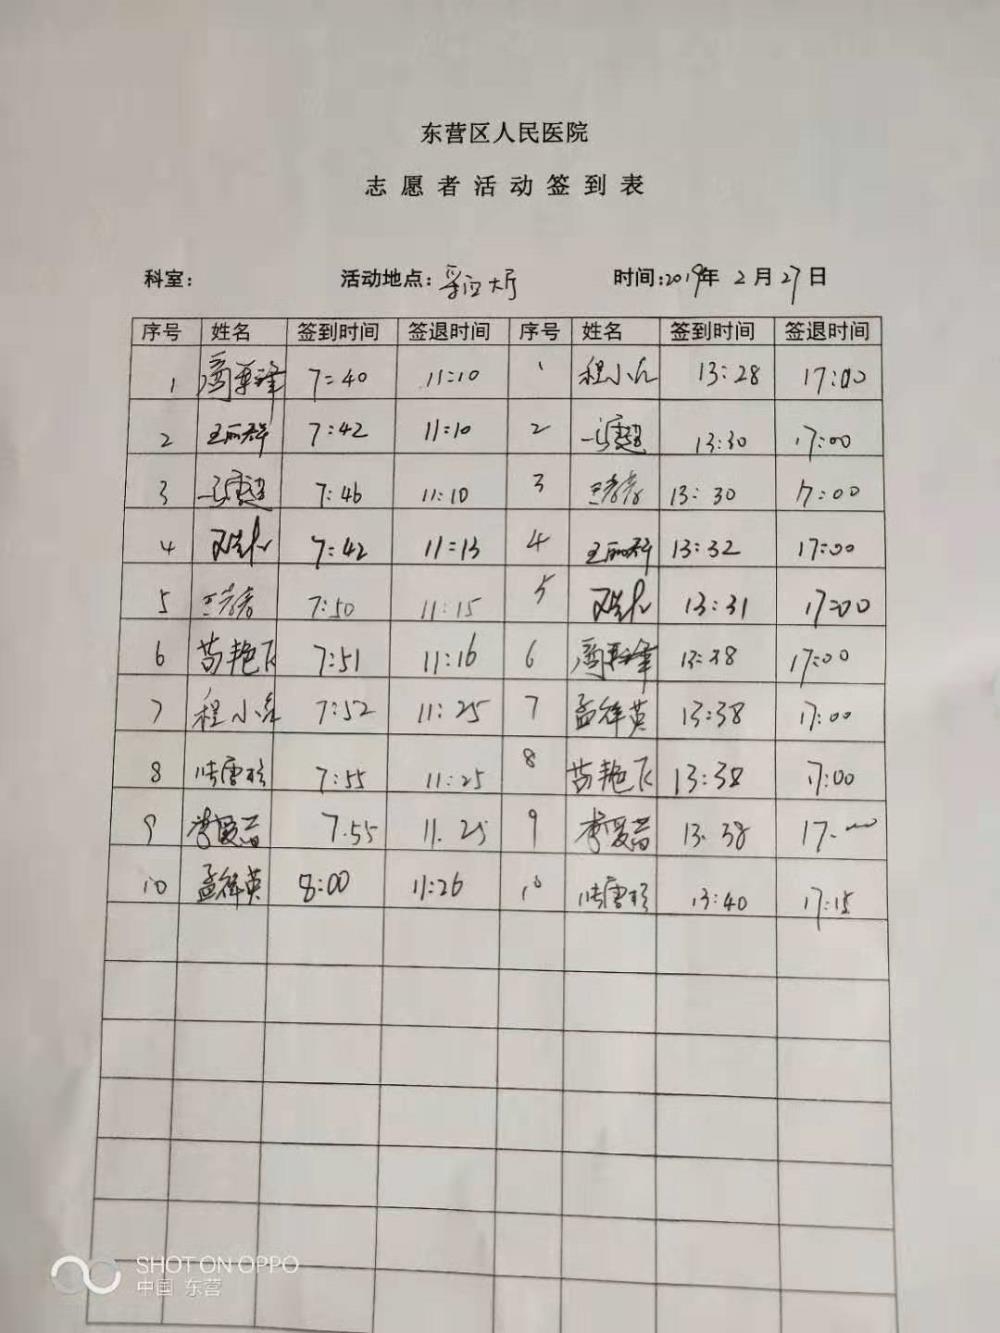 东营区人民医院
志愿者活动签到表
科室： 活动地点： 大厅 时间：2019年 2月 27日
序号 姓名 签到时间 签退时间 序号 姓名 签到时间 签退时间
1 7:40 11:10 1 程小 13:28 17:00
2 王丽群 7:42 11:10 2 马 13:30 17:00
3 马 7:46 11:10 3 王 13:30 17:00
4 7:42 11:13 4 王丽群 13:32 17:00
5 王 7:50 11:15 5 13:31 17:00
6 苗艳飞 7:51 11:16 6 13:38 17:00
7 程小 7:52 11:25 7 孟祥英 13:38 17:00
8 7:55 11:25 8 苗艳飞 13:38 17:00
9 李爱 7.55 11.25 9 李爱 13.38 17.00
10 孟祥英 8:00 11:26 10 13:40 17:15
SHOT ON OPPO
中国 东营